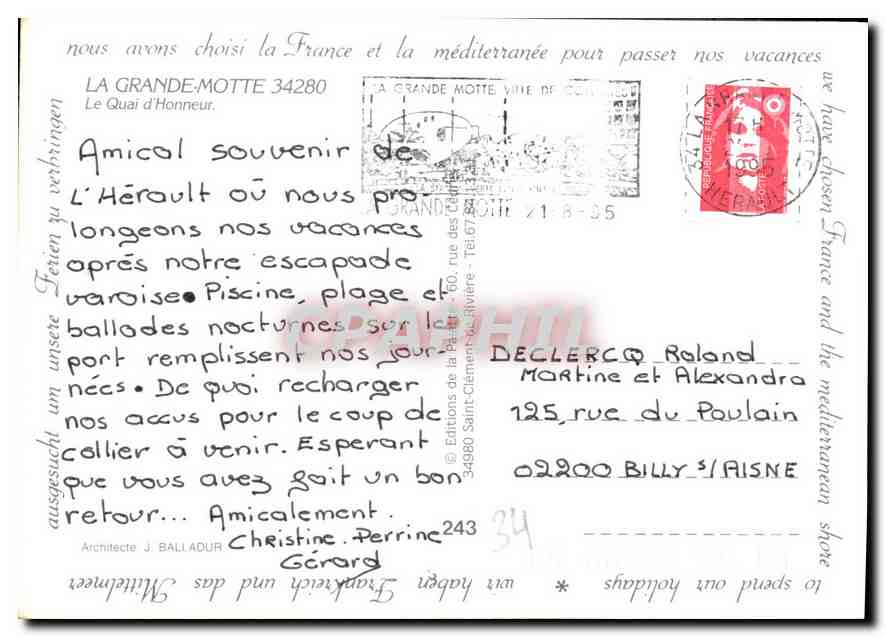 nous avons choisi la France et la méditerranée pour passer nos vacances
we have chosen France and the mediterranean shore
to spend our holidays * wir haben Frankreich und das Mittelmeer
ausgesucht um unsere Ferien zu verbringen
LA GRANDE-MOTTE 34280
Le Quai d'Honneur.
Amical souvenir de
L'Hérault où nous pro-
longeons nos vacances
aprés notre escapade
varoise. Piscine, plage et
ballades nocturnes sur le
port remplissent nos jour-
nées. De quoi recharger
nos accus pour le coup de
collier à venir. Esperant
que vous avez fait un bon
retour... Amicalement.
Christine. Perrine
Gérard
Architecte J. BALLADUR
243
© Editions de la Pastorale - 60, rue des Cèdres
34980 Saint-Clément de Rivière - Tel. 67.84.13.21
LA GRANDE MOTTE, VILLE DE
LA GRANDE MOTTE 21-8-95
RÉPUBLIQUE FRANÇAISE
LA POSTE
34 LA GRANDE MOTTE
1995
HERAULT
CPAPHIL
DECLERCQ Roland
Martine et Alexandra
125, rue du Poulain
02200 BILLY s/AISNE
34